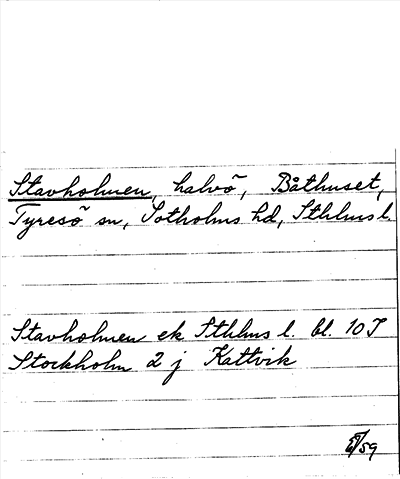 Stavholmen, halvö, Båthuset,
Tyresö sn, Sotholms hd, Sthlms l.
Stavholmen ek Sthlms l. bl. 10 I
Stockholm 2 j Kattvik
/59